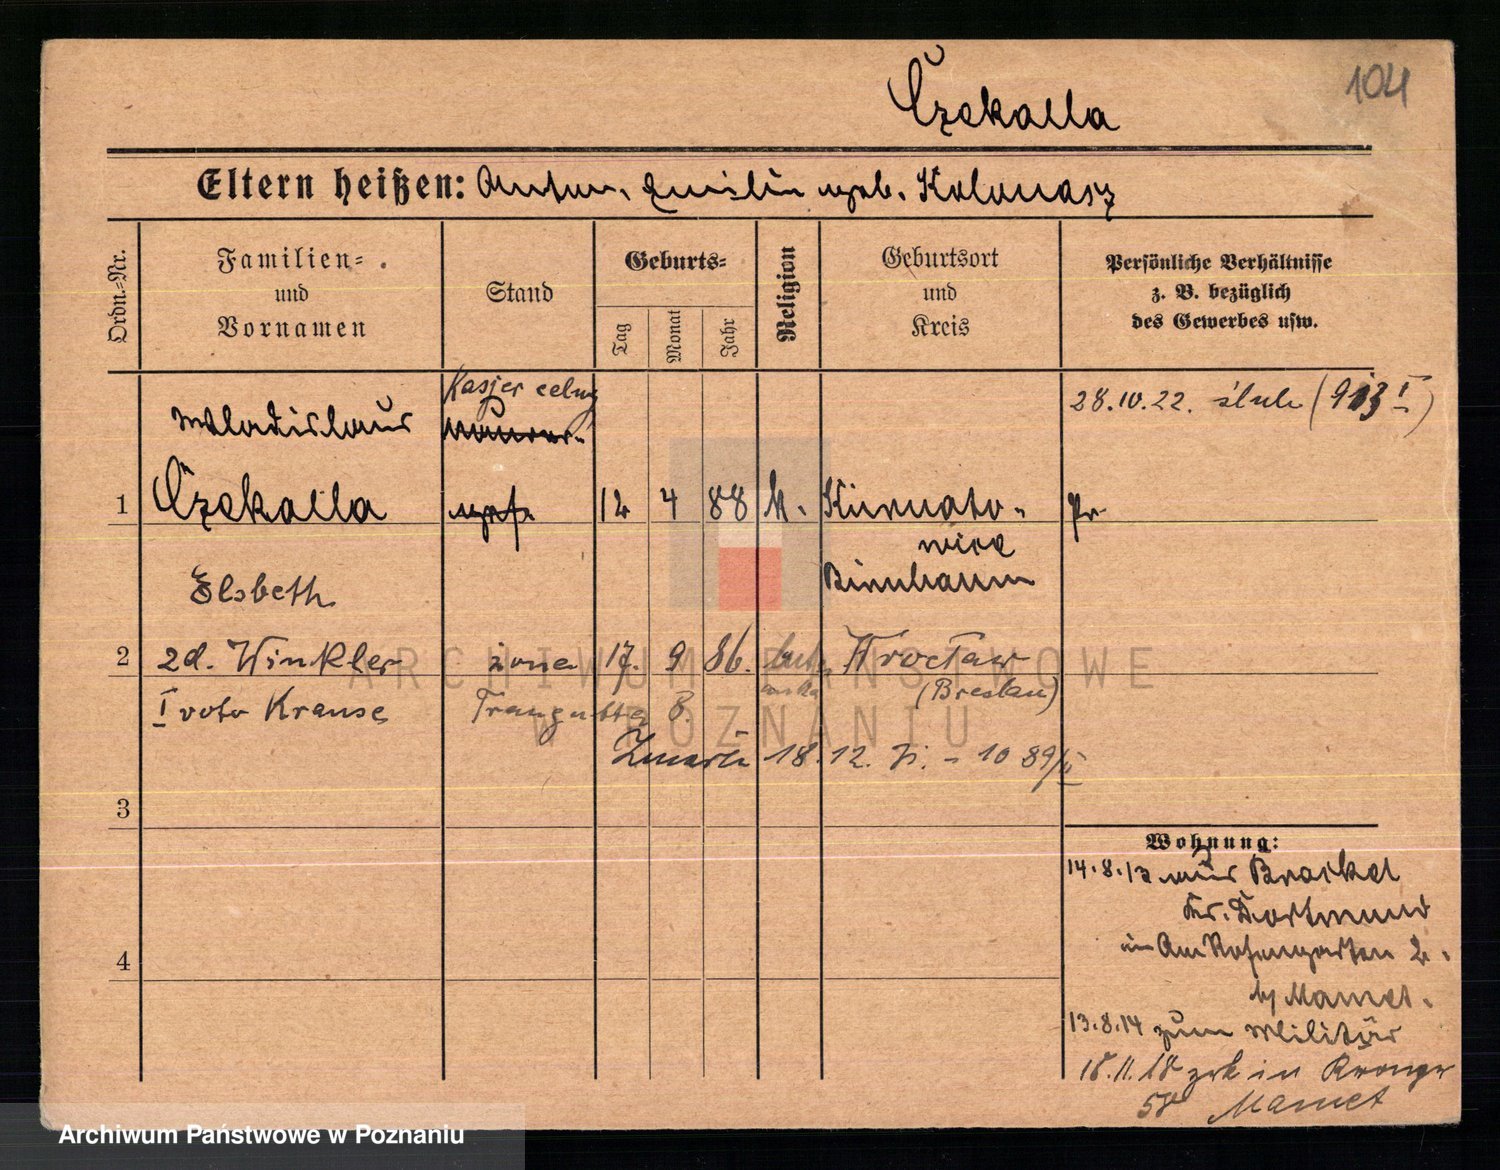 104
Czekalla
Eltern heißen: Anton, Emilie geb. Kolanasz
Ordn.-Nr.
Familien-
und
Vornamen
Stand
Geburts-
Tag
Monat
Jahr
Religion
Geburtsort
und
Kreis
Persönliche Verhältnisse
z. B. bezüglich
des Gewerbes usw.
Kasjer
28.10.22. (913 I)
Wladislaus
Maurer-
1 Czekalla 12 4 88 k. Kurnato-
wice
Birnbaum
Pr
Elsbeth
2 zd. Winkler żona 17. 9 86. Wrocław
(Breslau)
I voto Krause Traugutta 8.
Zmarła 18.12. - 10 89/II
3
4
Wohnung:
14.8.13 aus Brackel
Kr. Dortmund
in Am Rosengarten 2.
by Mamet.
13.8.14 zum Militär
18.11.18 zrk in
58 Mamet
ARCHIWUM PAŃSTWOWE
W POZNANIU
Archiwum Państwowe w Poznaniu